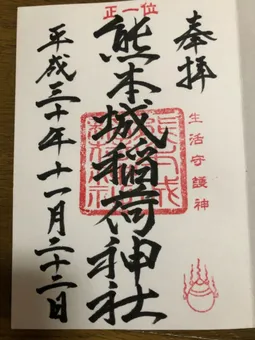 奉拝
生活守護神
正一位
熊本城稲荷神社
平成三十年十一月二十二日